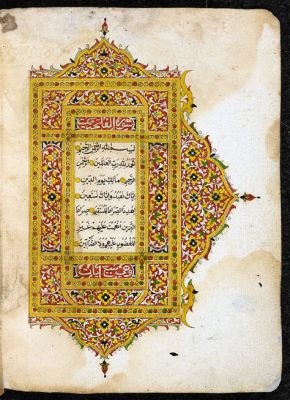 سورة الفاتحة
بسم الله الرحمن الرحيم
الحمد لله رب العالمين الرحمن
الرحيم مالك يوم الدين
اياك نعبد واياك نستعين
اهدنا الصراط المستقيم صراط
الذين انعمت عليهم غير
المغضوب عليهم ولا الضالين
وهي سبع ايات